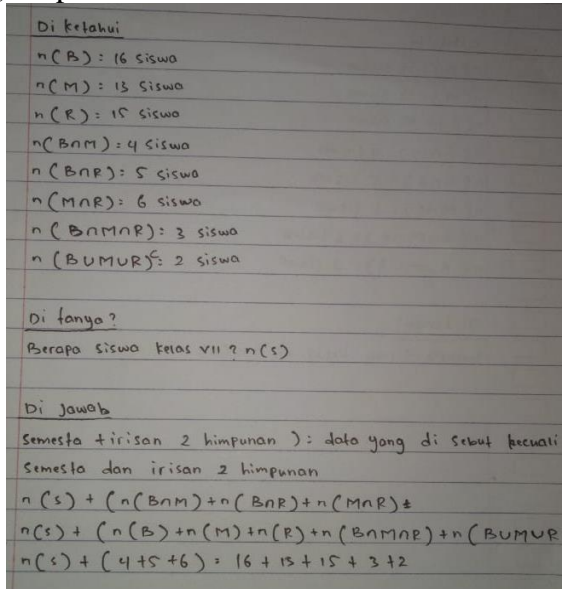 Di ketahui
n(B) : 16 siswa
n(M) : 13 siswa
n(R) : 15 siswa
n(B∩M) : 4 siswa
n(B∩R) : 5 siswa
n(M∩R) : 6 siswa
n(B∩M∩R) : 3 siswa
n(BUMUR)ᶜ: 2 siswa
Di tanya?
Berapa siswa kelas VII ? n(s)
Di Jawab
Semesta + irisan 2 himpunan ) : data yang di sebut kecuali
Semesta dan irisan 2 himpunan
n(s) + (n(B∩M) + n(B∩R) + n(M∩R) ±
n(s) + (n(B) + n(M) + n(R) + n(B∩M∩R) + n(BUMUR
n(s) + (4+5+6) = 16 + 13 + 15 + 3 + 2